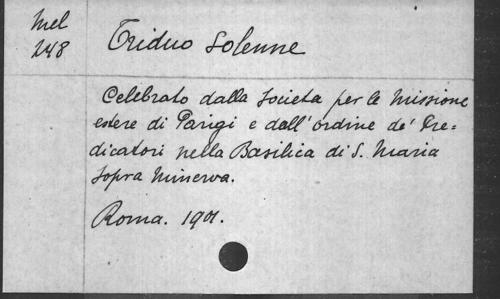 Mel
248
Triduo Solenne
Celebrato dalla Societa per le Missione
estere di Parigi e dall'ordine de' Pre=
dicatori nella Basilica di S. Maria
sopra Minerva.
Roma. 1901.